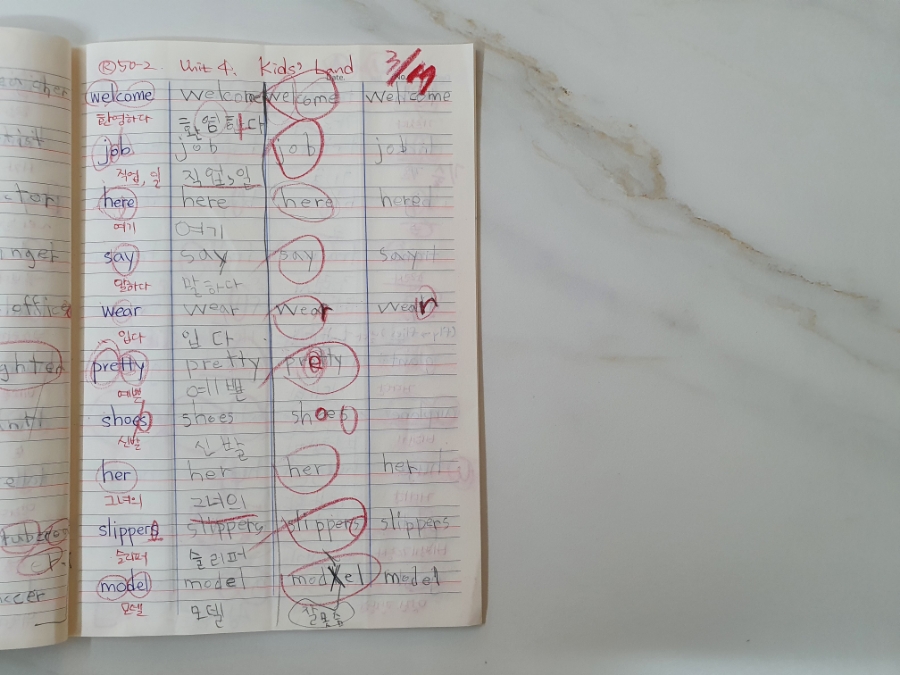 Ⓡ50-2. Unit 4. Kids' Land 3/19
welcome welcome welcome welcome
환영하다 환영하다
job job job job
직업, 일 직업, 일
here here here here
여기 여기
say say say say
말하다 말하다
wear wear wear wear
입다 입다
pretty pretty pretty
예쁜 예쁜
shoes shoes shoes
신발 신발
her her her her
그녀의 그녀의
slippers slippers slippers slippers
슬리퍼 슬리퍼
model model model model
모델 모델 잘못씀